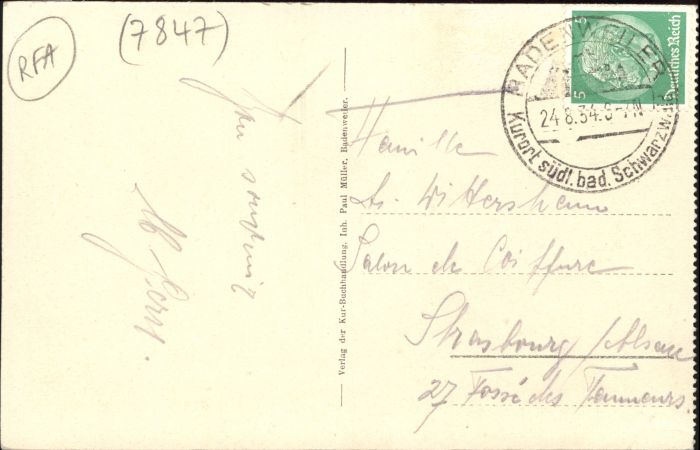 RFA
(7847)
Bon souvenir
Verlag der Kur-Buchhandlung, Inh. Paul Müller, Badenweiler.
BADENWEILER
24.8.34
Kurort südl. bad. Schwarzw.
5 5
Deutsches Reich
Famille
Wittersheim
Salon de Coiffure
Strasbourg /Alsace
27 Fossé des Tanneurs.